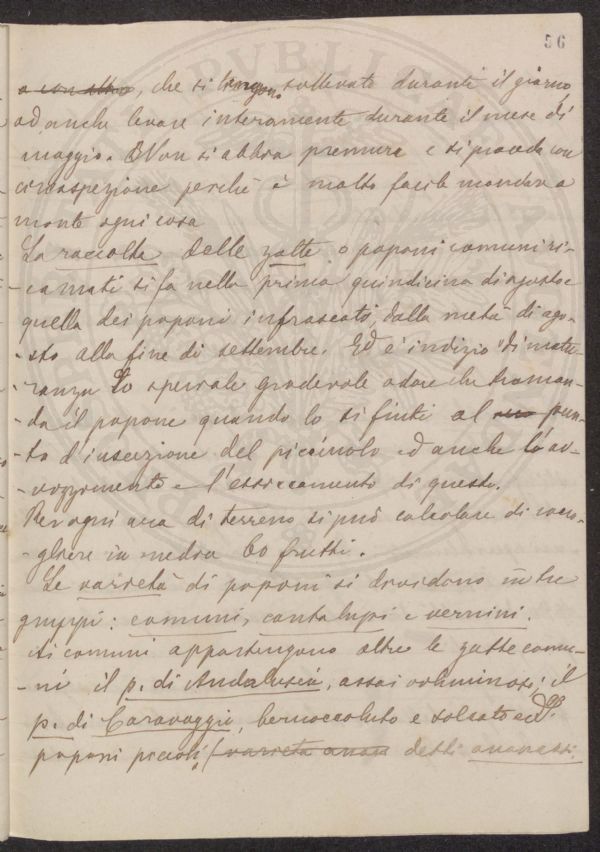 56
o con altro, che si tengono sollevate durante il giorno
ad anche levare interamente durante il mese di
maggio. Non si abbia premura e si proceda con
circospezione perchè è molto facile mandare a
monte ogni cosa
La raccolta delle zatte o poponi comuni ri-
-camati si fa nella prima quindicina di agosto e
quella dei poponi infrascati, dalla metà di ago-
-sto alla fine di settembre. Ed è indizio di matu-
-ranza lo speciale gradevole odore che traman-
-da il popone quando lo si fiuti al pun-
-to d'inserzione del picciuolo ed anche l'av-
-vizzimento e l'essiccamento di questo.
Per ogni ara di terreno si può calcolare di racco-
-gliere in media 60 frutti.
Le varietà di poponi si dividono in tre
gruppi: comuni, cantalupi e vernini.
Ai comuni appartengono oltre le zatte comu-
-ni il p. di Andalusia, assai voluminoso; il
p. di Caravaggio, bernoccoluto e solcato ed i
poponi piccoli, (varietà ananas detti ananassi.